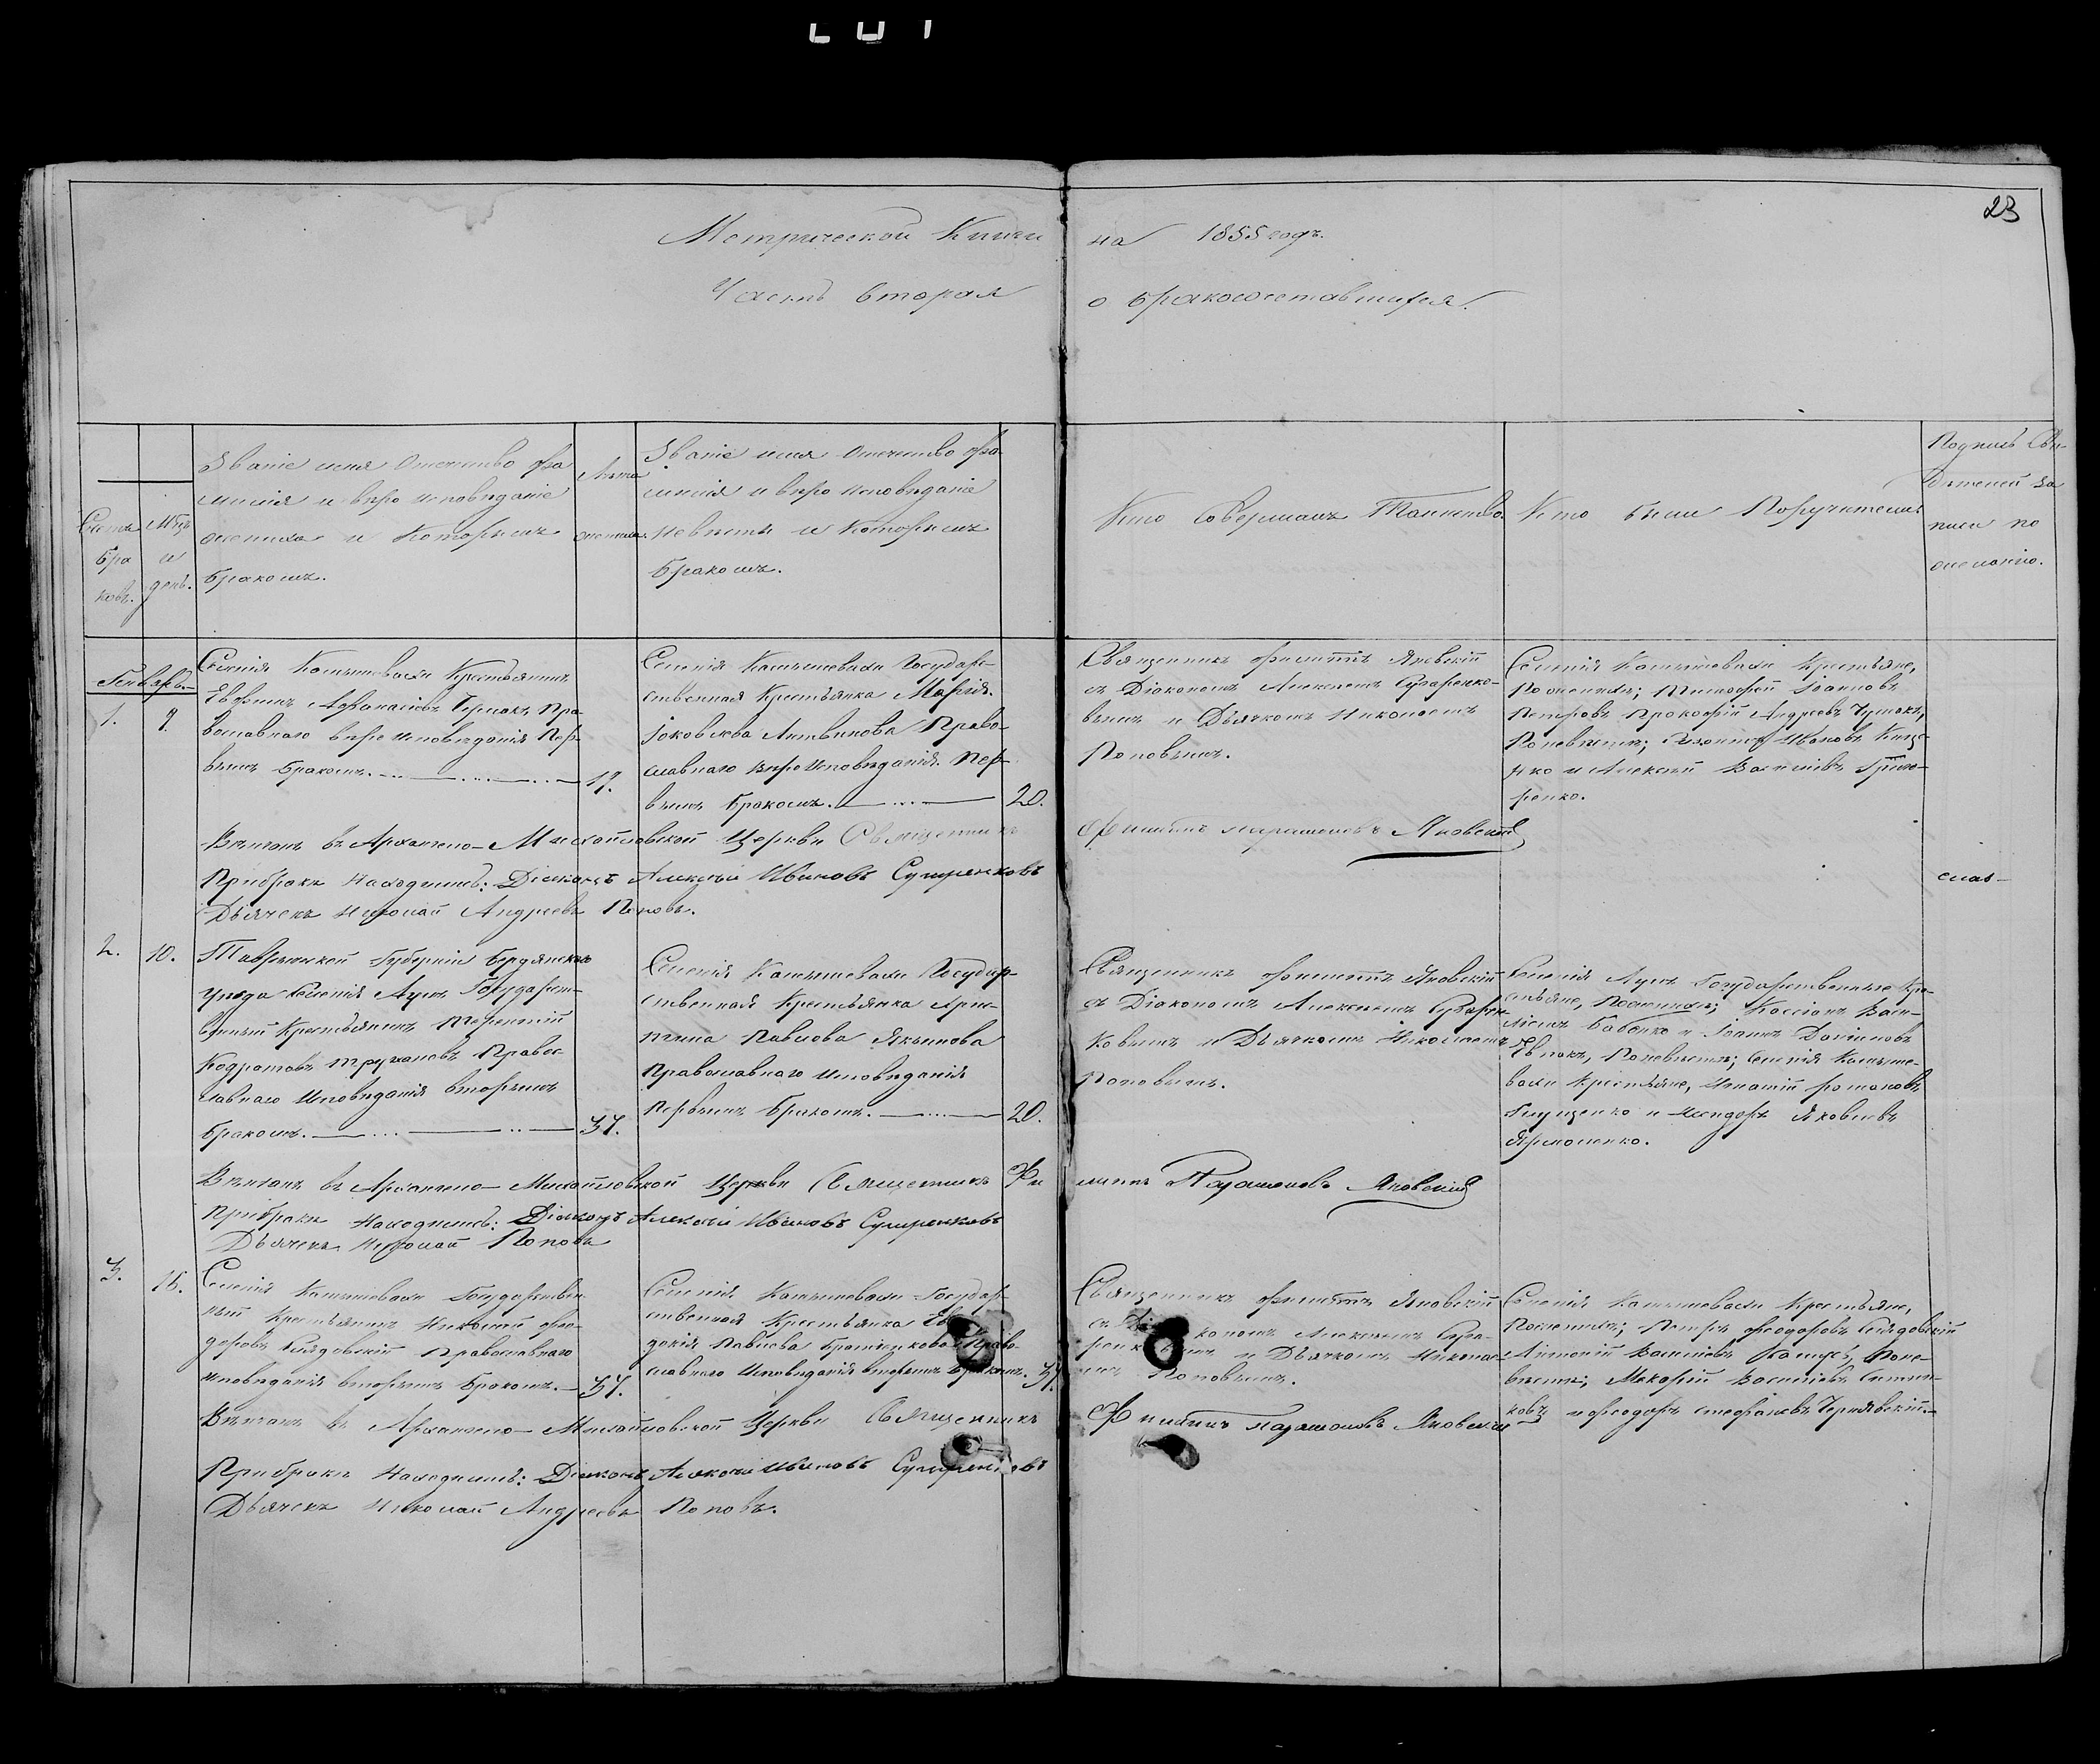 23
Метрической Книги на 1855 годъ.
Часть вторая о бракосочетавшихся.
Счетъ
бра
ковъ.
Мѣц
и
день.
Званіе имя Отечество фа
милія и вѣро исповѣданіе
жениха и Которымъ
бракомъ.
Лѣта
жениха.
Званіе имя Отечество фа
милія и вѣро исповѣданіе
невѣсты и Которымъ
бракомъ.
Кто Совершалъ Таинство.
Кто были Поручители
Подпись Сви-
дѣтелей за
писи по
желанію.
Генварь.
1. 9.
Селенія Камышевахи Крестьянинъ
Афанасіевъ Чермакъ, Пра
вославнаго вѣро исповѣданія Пер-
вымъ бракомъ. 19.
Селенія Камышевахи Государ-
ственная Крестьянка Марѳія
Іаковлева Литвинова Право-
славнаго вѣро Исповѣданія Пер-
вымъ бракомъ. 20.
Священникъ Филиппъ Яновскій
съ Діакономъ Алексѣемъ
вымъ и Дьячкомъ Николаемъ
Поповымъ.
Селенія Камышевахи Крестьяне,
По женихѣ; Тимофей Іоанновъ
Петровъ Прокофій Андреевъ Чермакъ,
По невѣстѣ; Ивановъ
и Алексѣй Васильевъ
ренко.
Вѣнчанъ въ Архангело-Михайловской Церкви Священникъ Филиппъ Парамоновъ Яновскій
При бракѣ Находились: Діаконъ Алексѣй Ивановъ
Дьячекъ Николай Андреевъ Поповъ.
2. 10.
Таврической Губерніи Бердянскаго
Уѣзда Селенія Государст-
венный Крестьянинъ Терентій
Кодратовъ Трухановъ Правос-
лавнаго Исповѣданія вторымъ
бракомъ. 37.
Селенія Камышевахи Государ-
ственная Крестьянка Агри-
пина Павлова Якымова
Православнаго Исповѣданія
Первымъ бракомъ. 20.
Священникъ Филиппъ Яновскій
съ Діакономъ Алексѣемъ
ковымъ и Дьячкомъ Николаемъ
Поповымъ.
Селенія Государственные Кре-
стьяне, По женихѣ; Касіянъ Васи-
ліевъ Бабенко и Іоаннъ Даніиловъ
По невѣстѣ; Селенія Камыше-
вахи Крестьяне, Игнатій Романовъ
и Исидоръ Яковлевъ
Ярмоленко.
Вѣнчанъ въ Архангело-Михайловской Церкви Священникъ Филиппъ Парамоновъ Яновскій
При бракѣ Находились: Діаконъ Алексѣй Ивановъ
Дьячекъ Николай Поповъ
3. 16.
Селенія Камышевахи Государствен
ный Крестьянинъ Николай Фео-
доровъ Православнаго
Исповѣданія вторымъ бракомъ. 37.
Селенія Камышевахи Государ-
ственная Крестьянка Ев
докія Павлова Право-
славнаго Исповѣданія вторымъ бракомъ.
Священникъ Филиппъ Яновскій
съ Діакономъ Алексѣемъ
и Дьячкомъ Никола-
емъ Поповымъ.
Селенія Камышевахи Крестьяне,
По женихѣ; Петръ Феодоровъ
Антоній Васильевъ По не-
вѣстѣ; Макарій Васильевъ
ковъ и Феодоръ Стефановъ Чернявскій.
Вѣнчанъ въ Архангело-Михайловской Церкви Священникъ Филиппъ Парамоновъ Яновскій
При бракѣ Находились: Діаконъ Алексѣй Ивановъ
Дьячекъ Николай Андреевъ Поповъ.